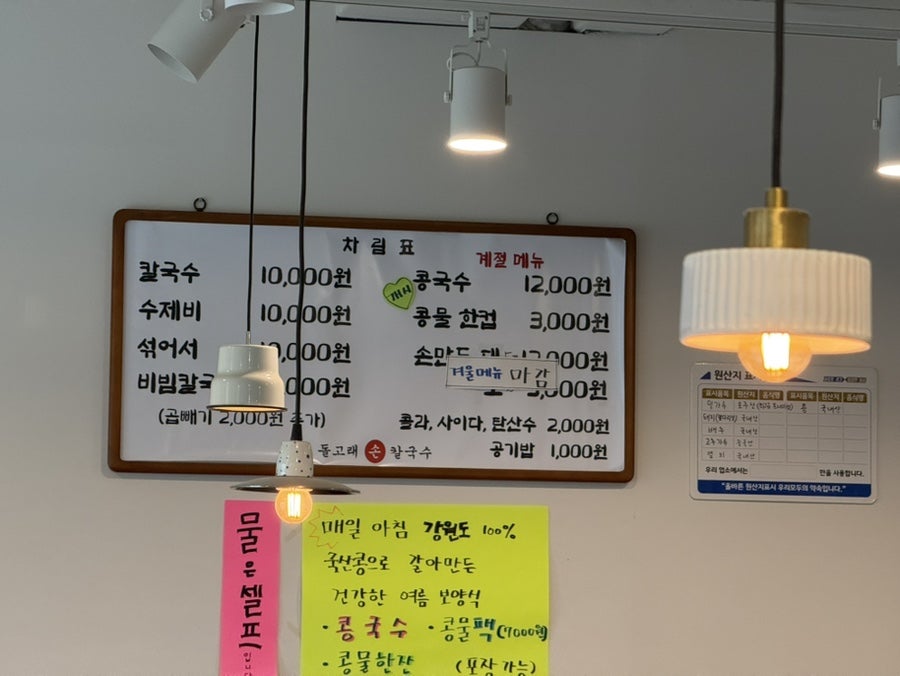 차림표
칼국수 10,000원
수제비 10,000원
섞어서 10,000원
비빔칼국
,000원
(곱빼기 2,000원 추가)
계절메뉴
개시
콩국수 12,000원
콩물 한컵 3,000원
손만두
겨울메뉴 마감
콜라, 사이다, 탄산수 2,000원
공기밥 1,000원
돌고래 손 칼국수
원산지 표
표시품목 원산지 음식명 표시품목 원산지 음식명
국내산
배추 국내산
고춧가루 중국산
국내산
우리 업소에서는 만을 사용합니다.
"올바른 원산지표시 우리모두의 약속입니다."
물은 셀프
입니다
매일 아침 강원도 100%
국산콩으로 갈아만든
건강한 여름 보양식
·콩국수 ·콩물팩(9000원)
·콩물한잔 (포장가능)